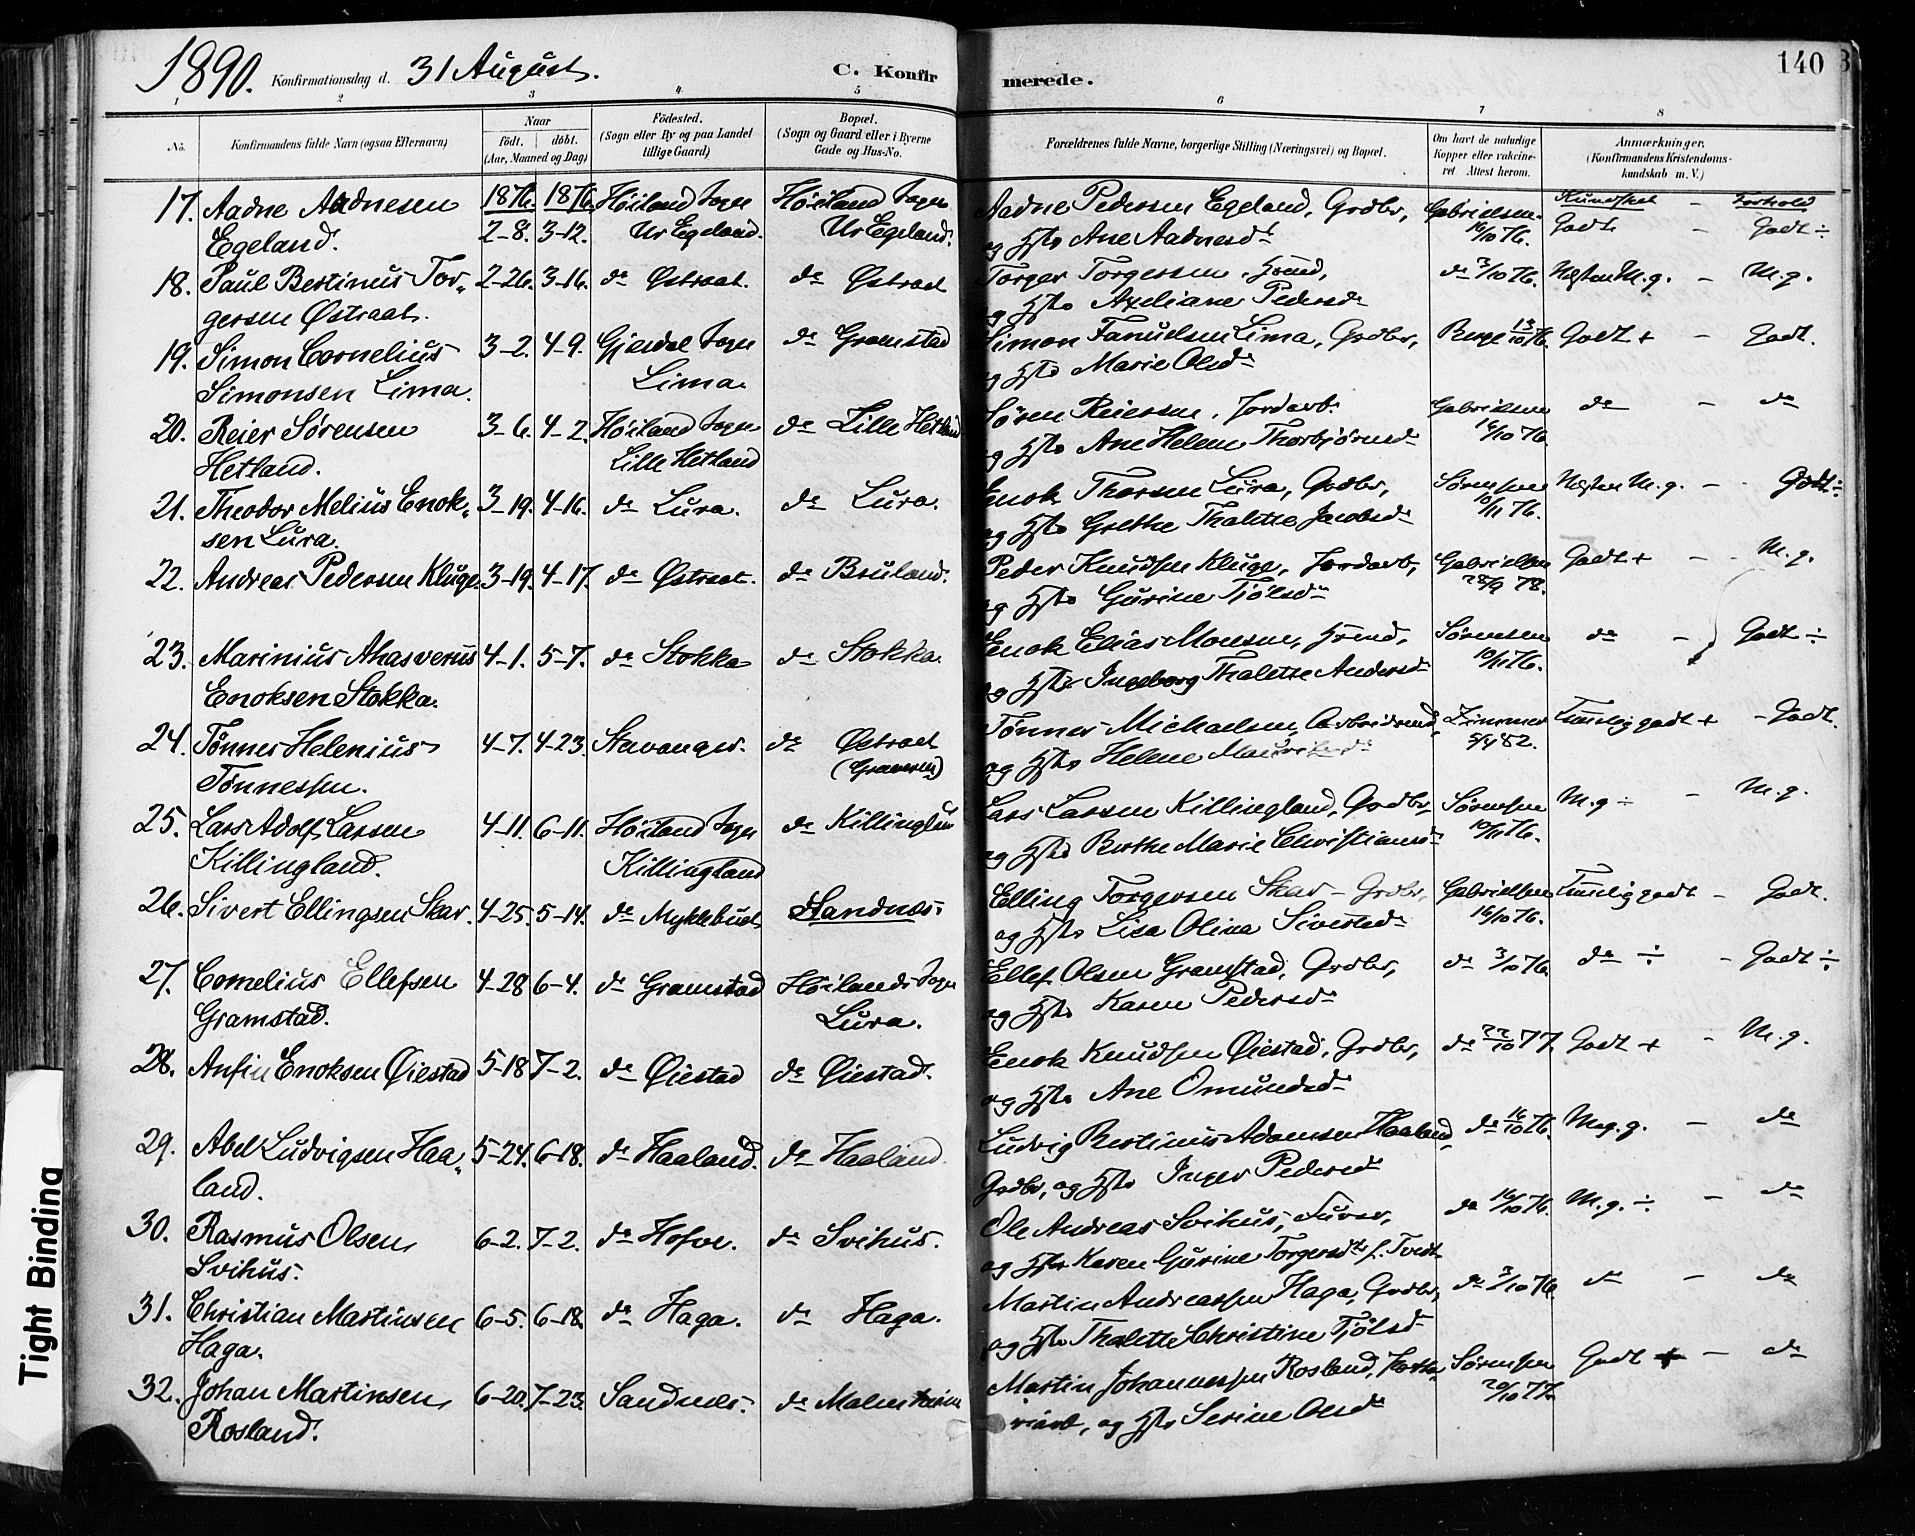 1890. Konfirmationsdag d. 31 August. C. Konfir merede. 140
1 2 3 4 5 6 7 8
No. Konfirmandens fulde Navn (ogsaa Efternavn) Naar födt. döbt. (Aar, Maaned og Dag) Födested. (Sogn eller By og paa Landet tillige Gaard) Bopæl. (Sogn og Gaard eller i Byerne Gade og Hus-No. Forældrenes fulde Navne, borgerlige Stilling (Næringsvei) og Bopæl. Om havt de naturlige Kopper eller vakcineret. Attest herom. Anmærkninger. (Konfirmandens Kristendomskundskab m. V.)
17. Aadne Aadnesen 1876. 1876. Höiland Sogn Höiland Sogn Aadne Pedersen Egeland, Grdbr, Gabrielsen Kundskab – Forhold
Egeland. 2-8. 3-12. Ur Egeland. Ur Egeland. og Hstr Ane Aadnesdr 16/10 76. Godt – Godt ÷
18. Paul Bertinus Tor- 2-26. 3-16. do Østraat. do Østraat Torger Torgersen, Hmd, do 3/10 76. Næsten M.g. – M.g.
gersen Østraat. og Hstr Axeliane Pedersdr
19. Simon Cornelius 3-2. 4-9. Gjesdal Sogn do Gramstad Simon Fanuelsen Lima, Grdbr, Berge 13/10 76. Godt + – Godt.
Simonsen Lima. Lima. og Hstr Marie Olsdr
20. Reier Sørensen 3-6. 4-2. Höiland Sogn do Lille Hetland Søren Reiersen, Jordarb. Gabrielsen do – do
Hetland. Lille Hetland og Hstr Ane Helene Thorbjørnsdr 16/10 76.
21. Theodor Melius Enok- 3-19. 4-16. do Lura. do Lura. Enok Thorsen Lura, Grdbr, Sørensen Næsten M.g. – Godt ÷
sen Lura. og Hstr Grethe Thalette Jacobsdr 10/11 76.
22. Andreas Pedersen Kluge 3-19. 4-17. do Østraat. do Bruland. Peder Knudsen Kluge, Jordarb, Gabrielsen Godt + – M.g.
og Hstr Gurine Tjölsdr 28/9 78.
23. Marinius Ahasverus 4-1. 5-7. do Stokka do Stokka. Enok Elias Monsen, Hmd, Sørensen do – Godt ÷
Enoksen Stokka. og Hstr Ingeborg Thalette Andersdr 10/11 76.
24. Tønnes Helenius 4-7. 4-23. Stavanger. do Østraat Tønnes Michaelsen, Arbeidsmd, Zimmer Temmelig godt + – Godt.
Tønnessen. (Graveren) og Hstr Helene 5/4 82.
25. Lars Adolf Larsen 4-11. 6-11. Höiland Sogn do Killingland Lars Larsen Killingland, Grdbr Sørensen M.g ÷ – M.g.
Killingland. Killingland og Hstr Berthe Marie Christiansdr 10/11 76.
26. Sivert Ellingsen Skar. 4-25. 5-14. do Myklebust Sandnes. Elling Torgersen Skar – Grdbr, Gabrielsen Temmelig godt – Godt.
og Hstr Lisa Olina Sivertsdr 16/10 76.
27. Cornelius Ellefsen 4-28 6-4. do Gramstad Höilands Sogn Ellef Olsen Gramstad, Grdbr, do 3/10 76. do ÷ – Godt ÷
Gramstad. Lura. og Hstr Karen Pedersdr
28. Anfin Enoksen Øiestad 5-18 7-2. do Øiestad do Øiestad. Enok Knudsen Øiestad, Grdbr, do 22/10 77. Godt + – M.g.
og Hstr Ane Omundsdr
29. Abel Ludvigsen Haa- 5-24. 6-18. do Haaland. do Haaland. Ludvig Bertinus Adamsen Haaland, do 16/10 76. Meg. g. – do
land. Grdbr, og Hstr Inger Pedersdr
30. Rasmus Olsen 6-2. 7-2. do Hofve. do Svihus. Ole Andreas Svihus, do 16/10 76. M.g. ÷ – do
Svihus. og Hstr Karen Gurine Torgersdr f. Tvedt
31. Christian Martinsen 6-5. 6-18. do Haga. do Haga. Martin Andreassen Haga, Grdbr, do 3/10 76 do – do
Haga. og Hstr Thalette Christine Tjölsdr
32. Johan Martinsen 6-20. 7-23. Sandnes. do Malmheim Martin Johannessen Rosland, Sørensen Godt + – do
Rosland. og Hstr Serine Olsdr 20/10 77
Tight Binding